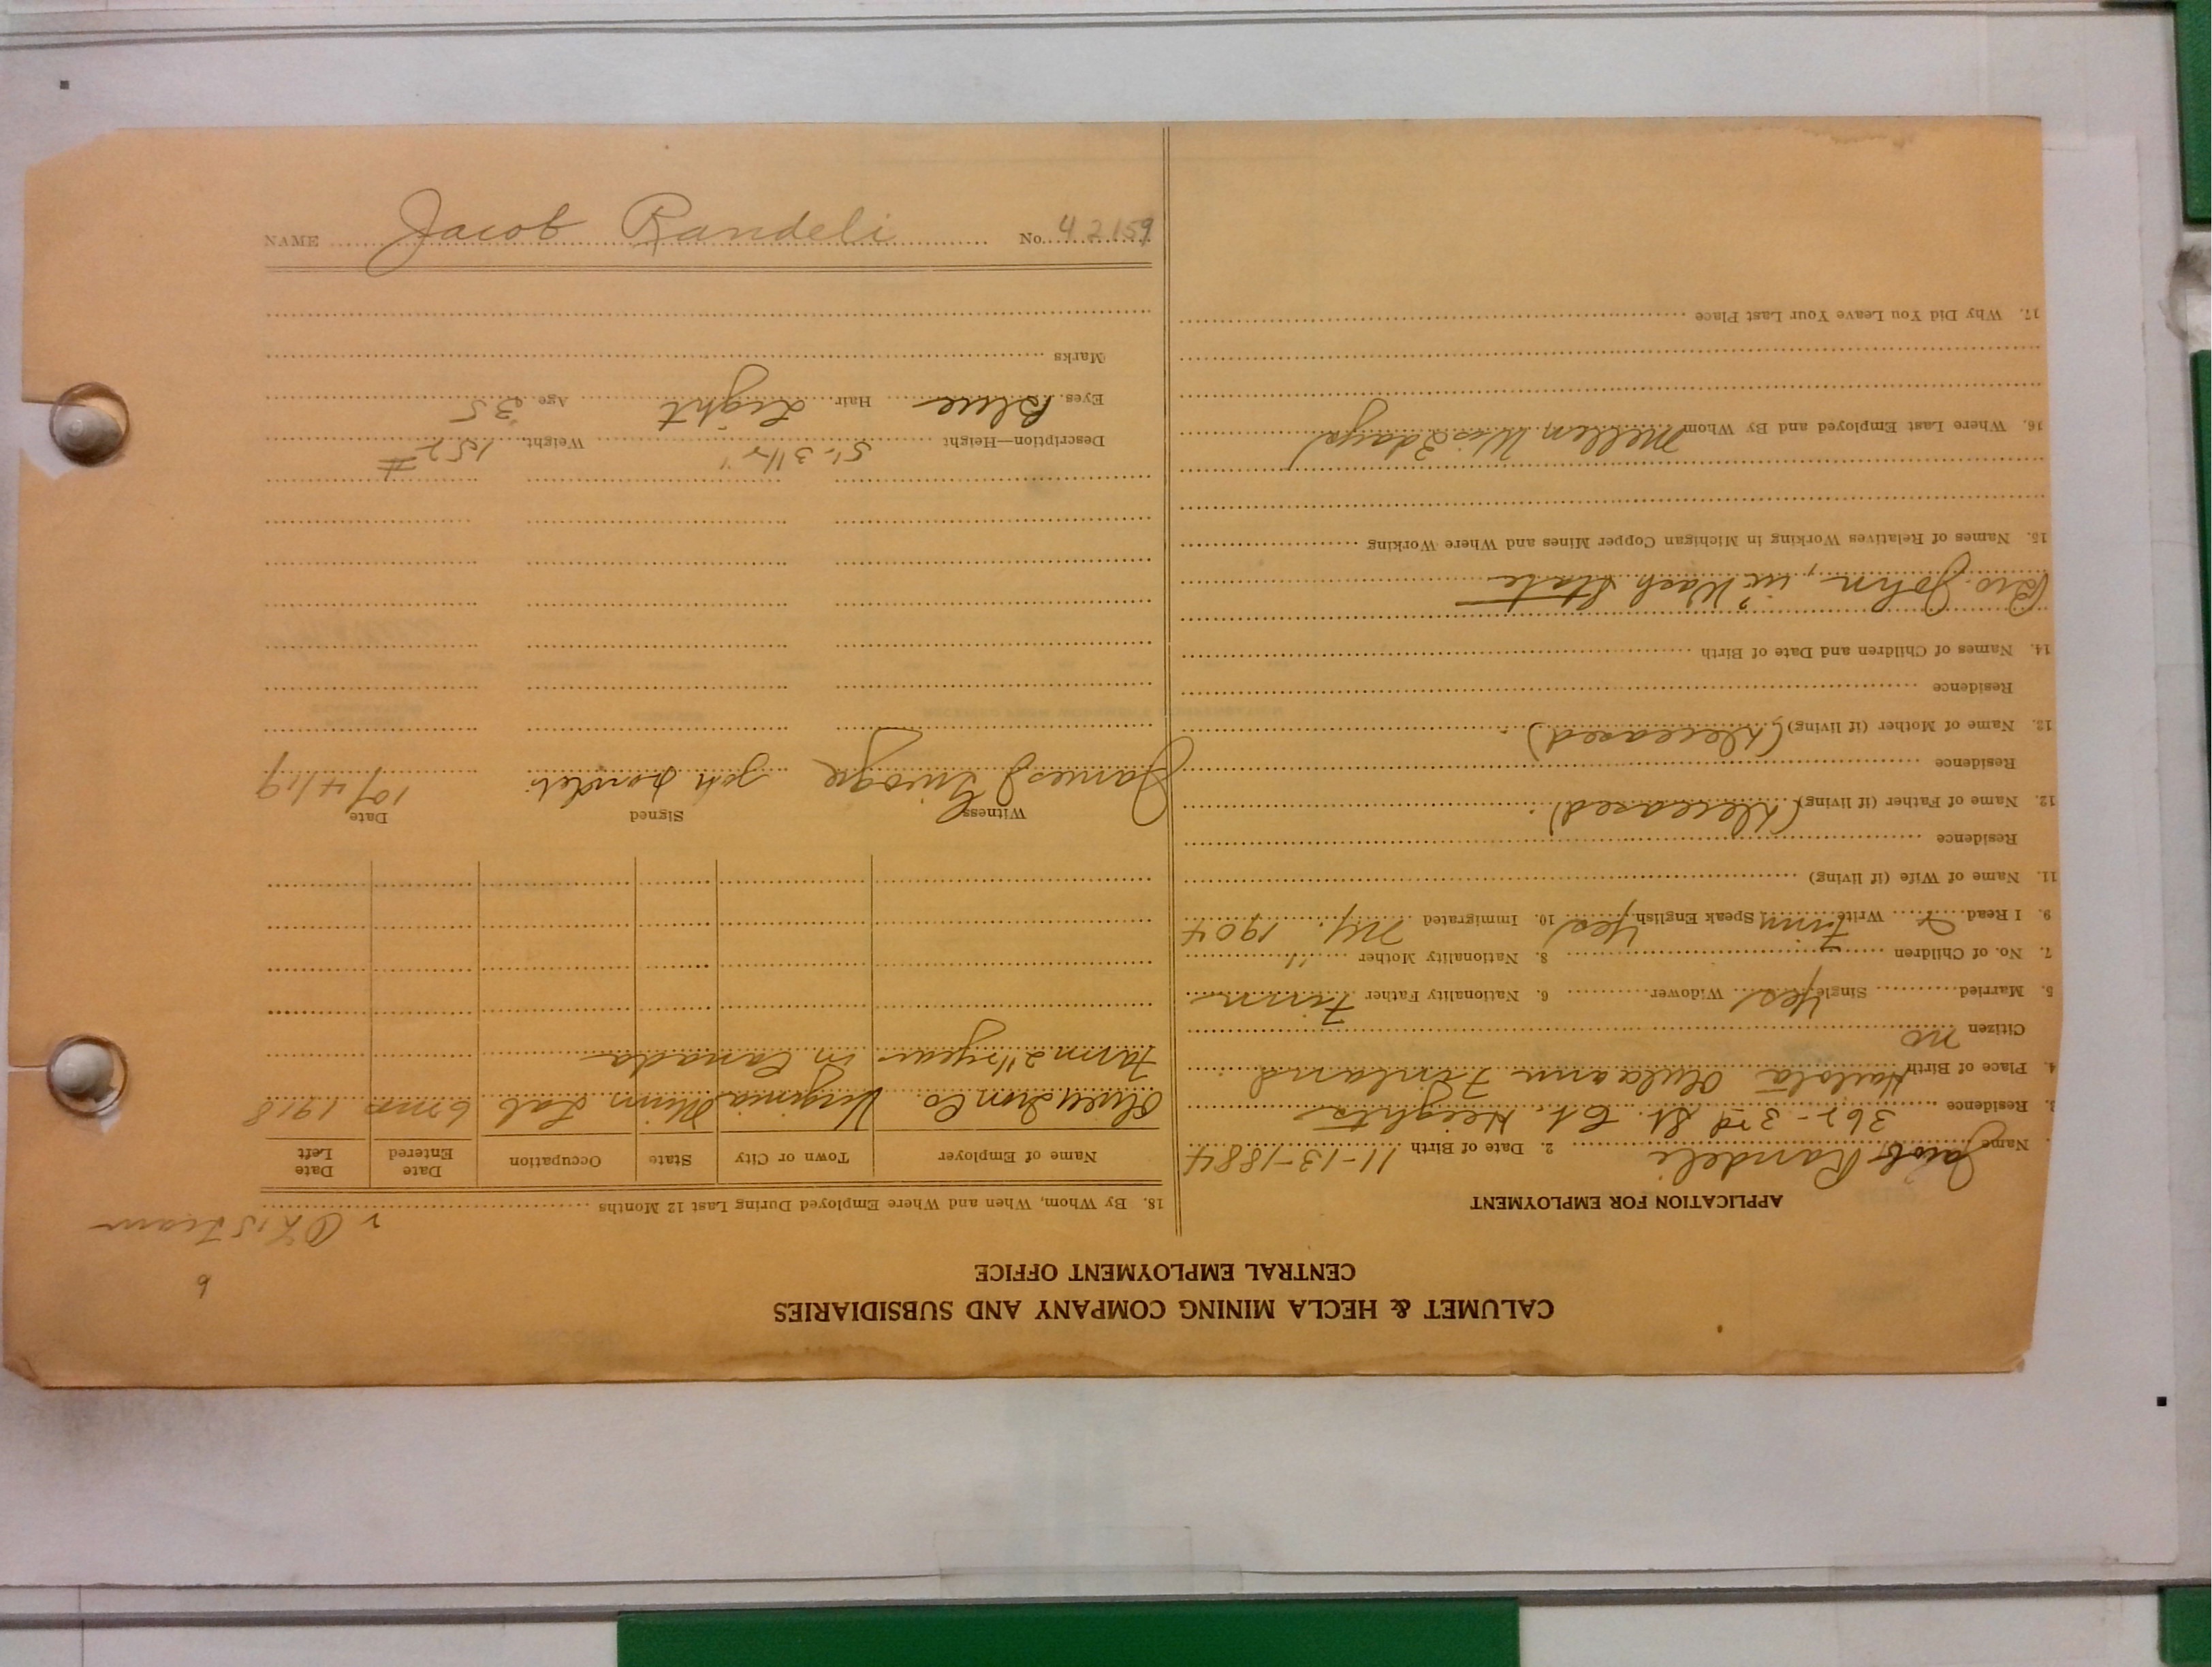 CALUMET & HECLA MINING COMPANY AND SUBSIDIARIES
CENTRAL EMPLOYMENT OFFICE
6
APPLICATION FOR EMPLOYMENT
Name Jacob Randeli 2. Date of Birth 11-13-1884
3. Residence 362-3rd St. Heights
4. Place of Birth Finland
Citizen no
5. Married Single Yes Widower 6. Nationality Father Finn
7. No. of Children 8. Nationality Mother "
9. I Read Write Finn Speak English Yes 10. Immigrated NY. 1904
11. Name of Wife (if living)
Residence
12. Name of Father (if living) (Deceased)
Residence
13. Name of Mother (if living) (Deceased)
Residence
14. Names of Children and Date of Birth
Bro. John, in Wash State
15. Names of Relatives Working in Michigan Copper Mines and Where Working
16. Where Last Employed and By Whom Mellen Wis
17. Why Did You Leave Your Last Place
18. By Whom, When and Where Employed During Last 12 Months
Name of Employer Town or City State Occupation Date Entered Date Left
Oliver Iron Co. Virginia Minn Lab 6 mos 1918
Farm 2 1/2 years in Canada
Witness Signed Date
James 10/4/19
Description—Height 5'-3 1/2" Weight 152 #
Eyes Blue Hair Light Age 35
Marks
NAME Jacob Randeli No. 42159